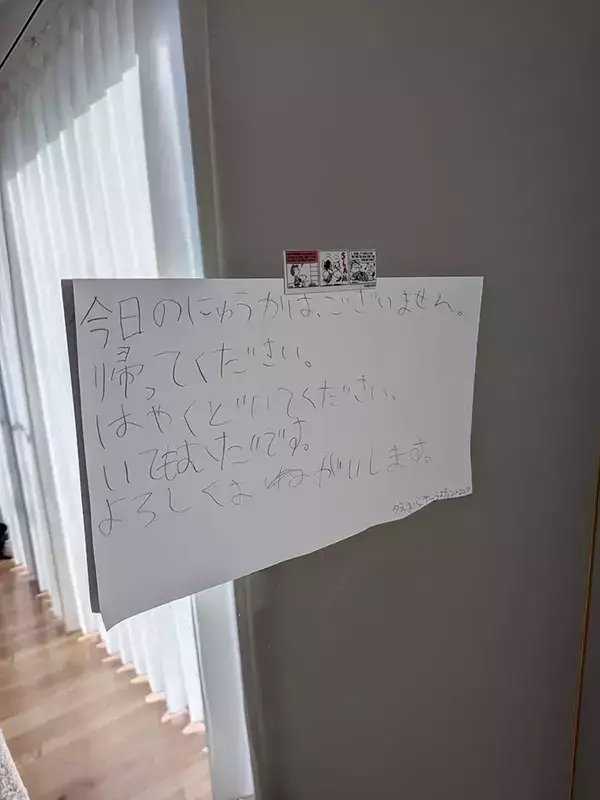 SLAM
今日のにゅうかは、ございません。
帰ってください。
はやくどいてください。
いてもむだです。
よろしくま ねがいします。